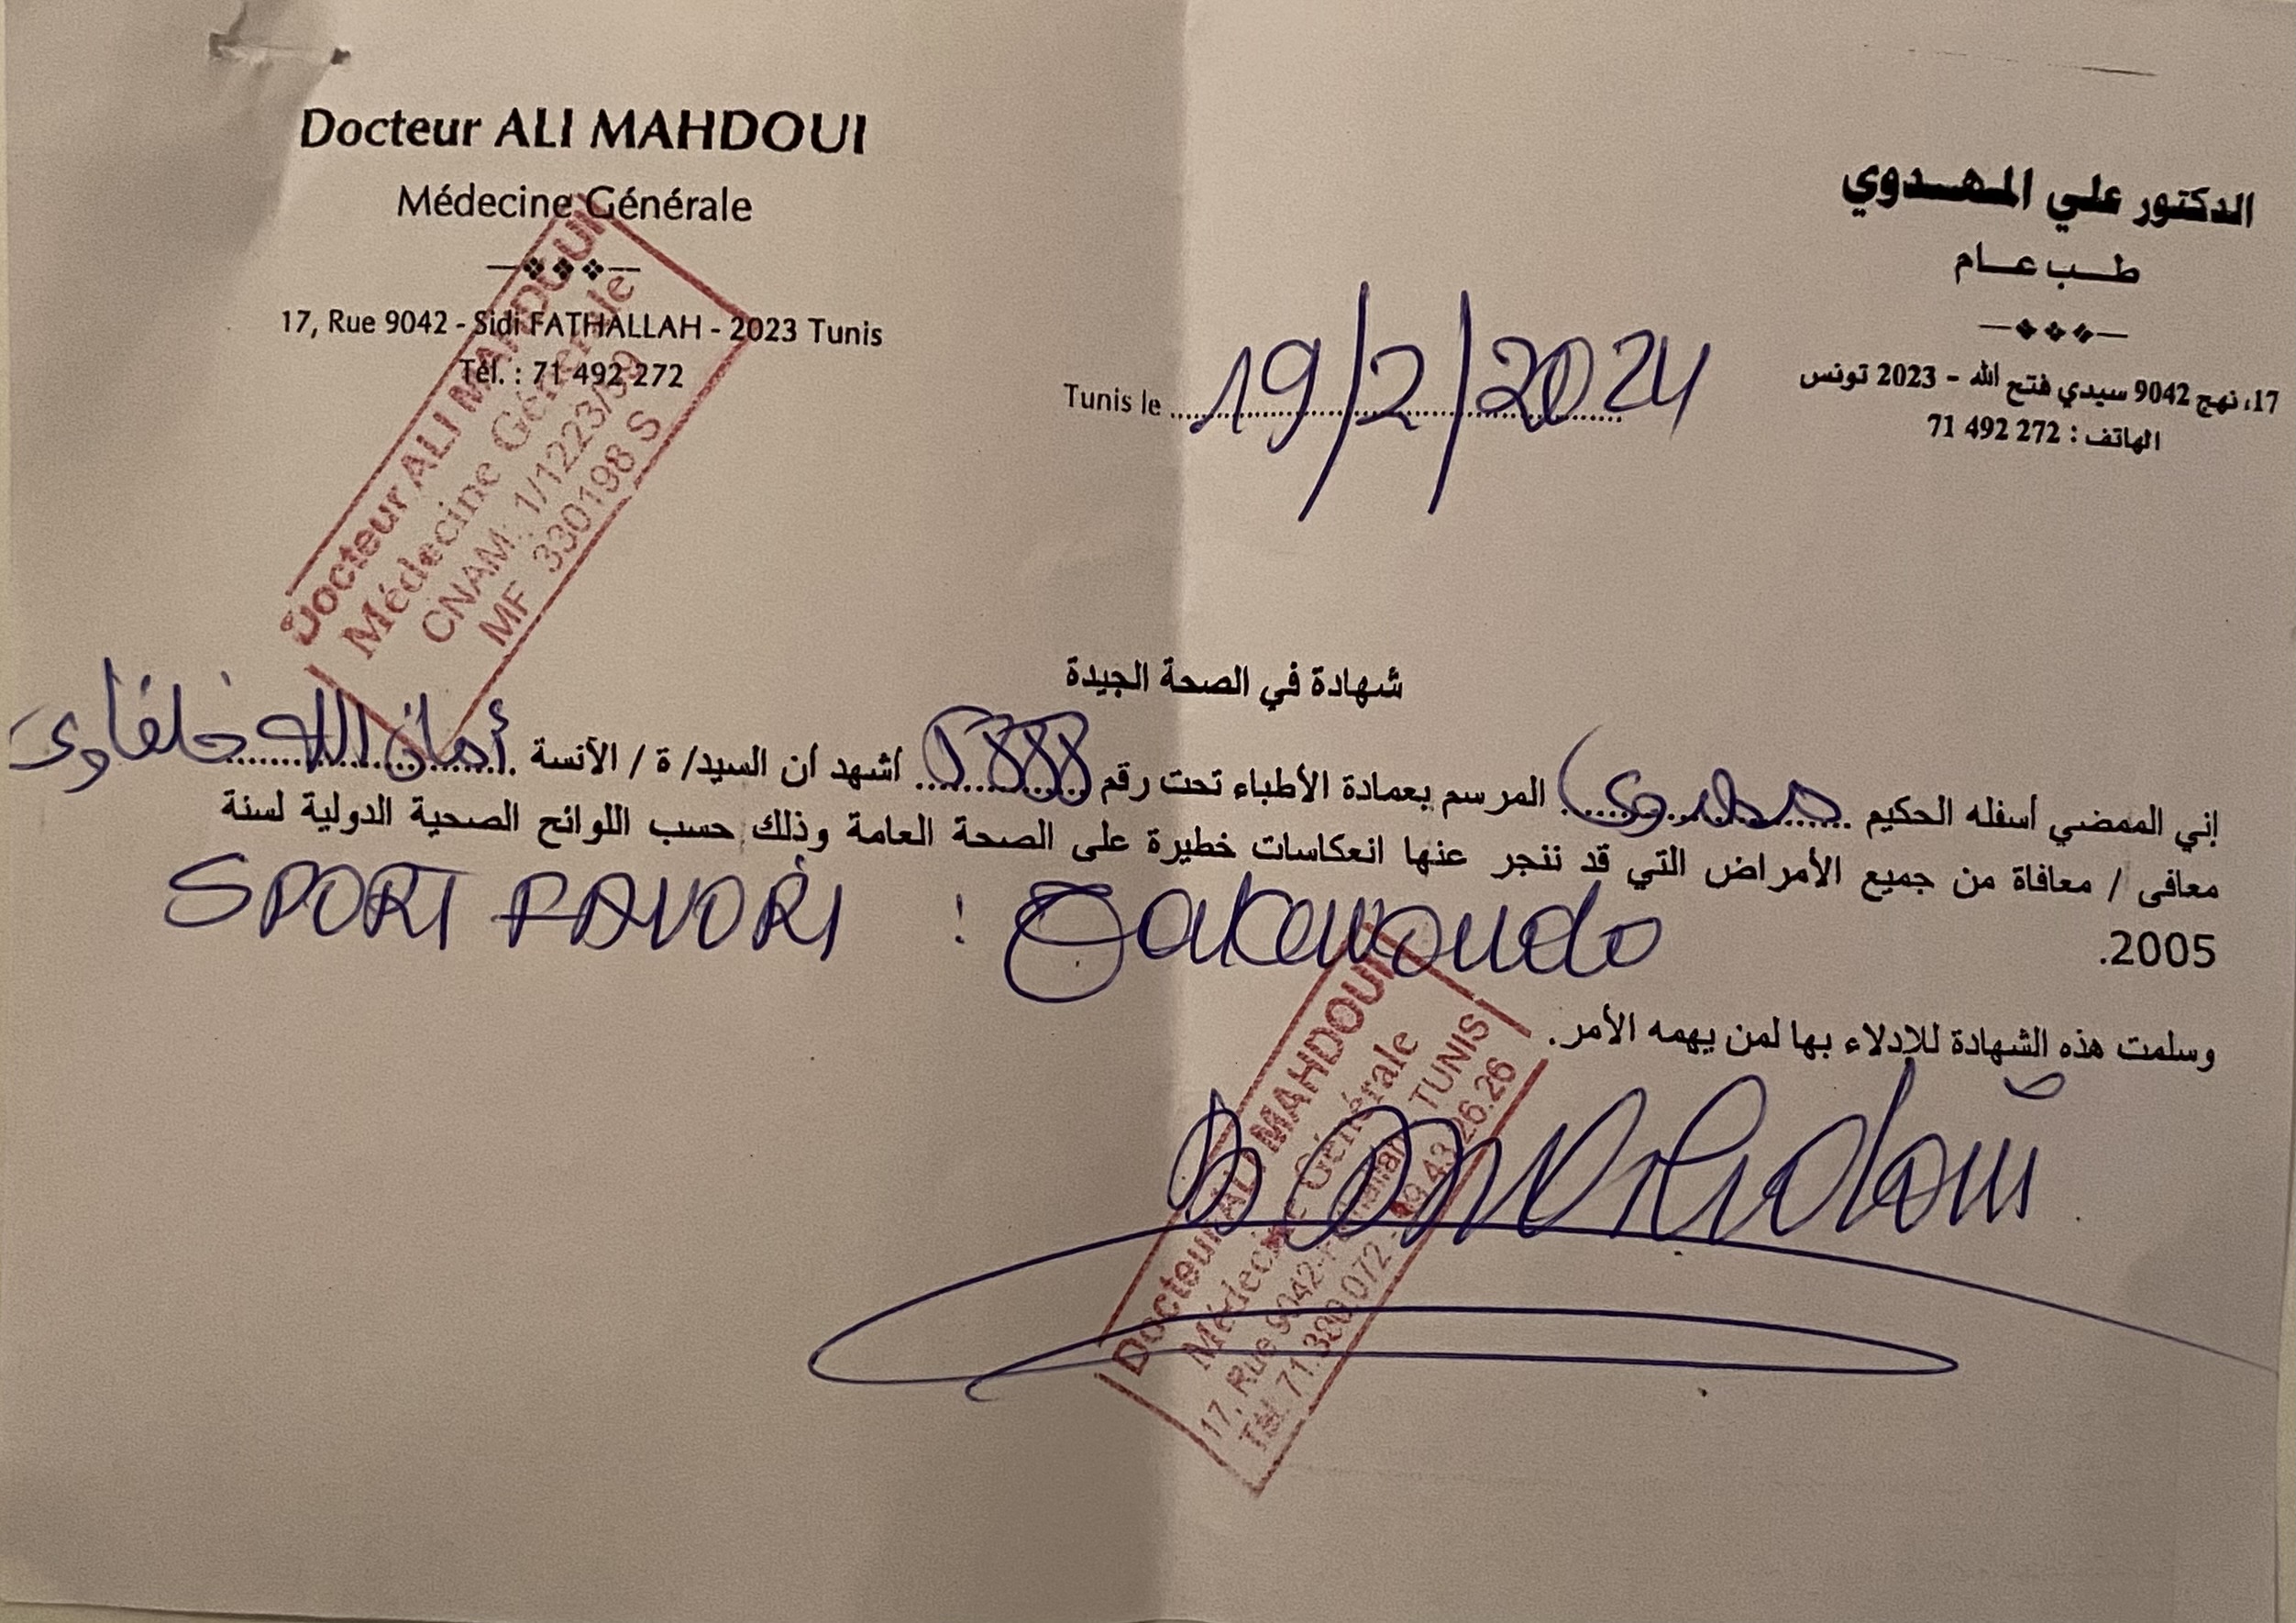 Docteur ALI MAHDOUI
Médecine Générale
17, Rue 9042 - Sidi FATHALLAH - 2023 Tunis
Tél. : 71 492 272
الدكتور علي المهدوي
طب عام
17، نهج 9042 سيدي فتح الله - 2023 تونس
الهاتف : 272 492 71
Tunis le 19/2/2024
Docteur ALI MAHDOUI
Médecine Générale
CNAM: 1/1223/39
MF 330198 S
شهادة في الصحة الجيدة
إني الممضي أسفله الحكيم مهدوي المرسم بعمادة الأطباء تحت رقم اشهد ان السيد/ ة / الآنسة أمان الله خلفاوي
معافى / معافاة من جميع الأمراض التي قد تنجر عنها انعكاسات خطيرة على الصحة العامة وذلك حسب اللوائح الصحية الدولية لسنة
2005.
SPORT FAVORI : Taekwondo
وسلمت هذه الشهادة للإدلاء بها لمن يهمه الأمر.
Docteur ALI MAHDOUI
Médecine Générale
17, Rue 9042- TUNIS
Tél. 71.380 072 - 43.26.26